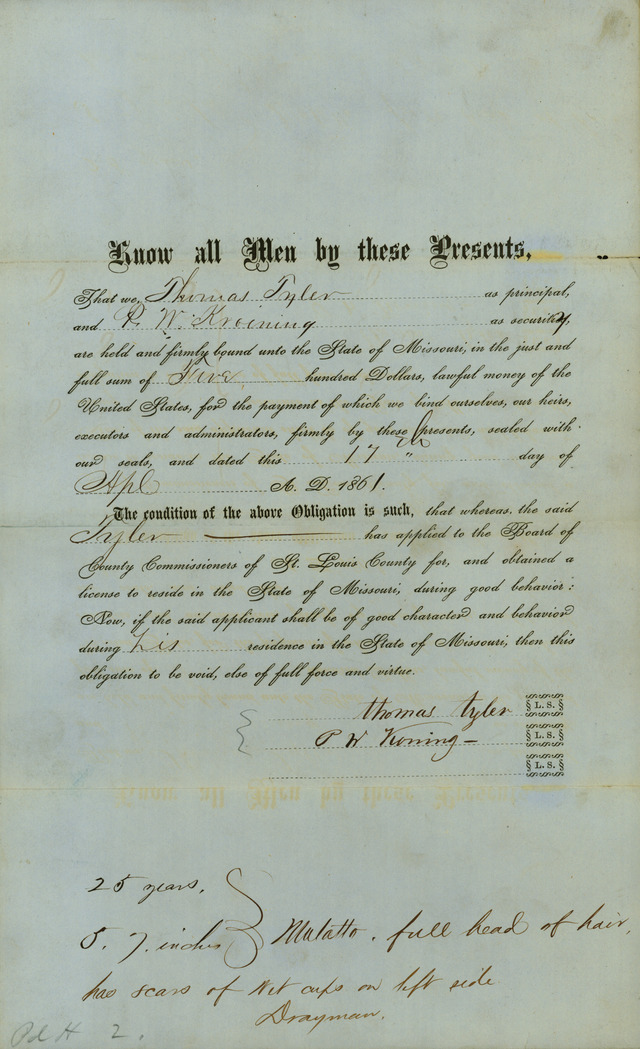 Know all Men by these Presents,
That we, Thomas Tyler as principal,
and P. W. Kroening as security,
are held and firmly bound unto the State of Missouri, in the just and
full sum of Five hundred Dollars, lawful money of the
United States, for the payment of which we bind ourselves, our heirs,
executors and administrators, firmly by these presents, sealed with
our seals, and dated this 17 th day of
Apl A. D. 1861.
The condition of the above Obligation is such, that whereas, the said
Tyler has applied to the Board of
County Commissioners of St. Louis County for, and obtained a
license to reside in the State of Missouri, during good behavior:
Now, if the said applicant shall be of good character and behavior
during his residence in the State of Missouri, then this
obligation to be void, else of full force and virtue.
thomas tyler L. S.
P W L. S.
L. S.
25 years,
5. 7. inches Mulatto. full head of hair,
has scars of wet cups on left side
Drayman.
Pd H 2.